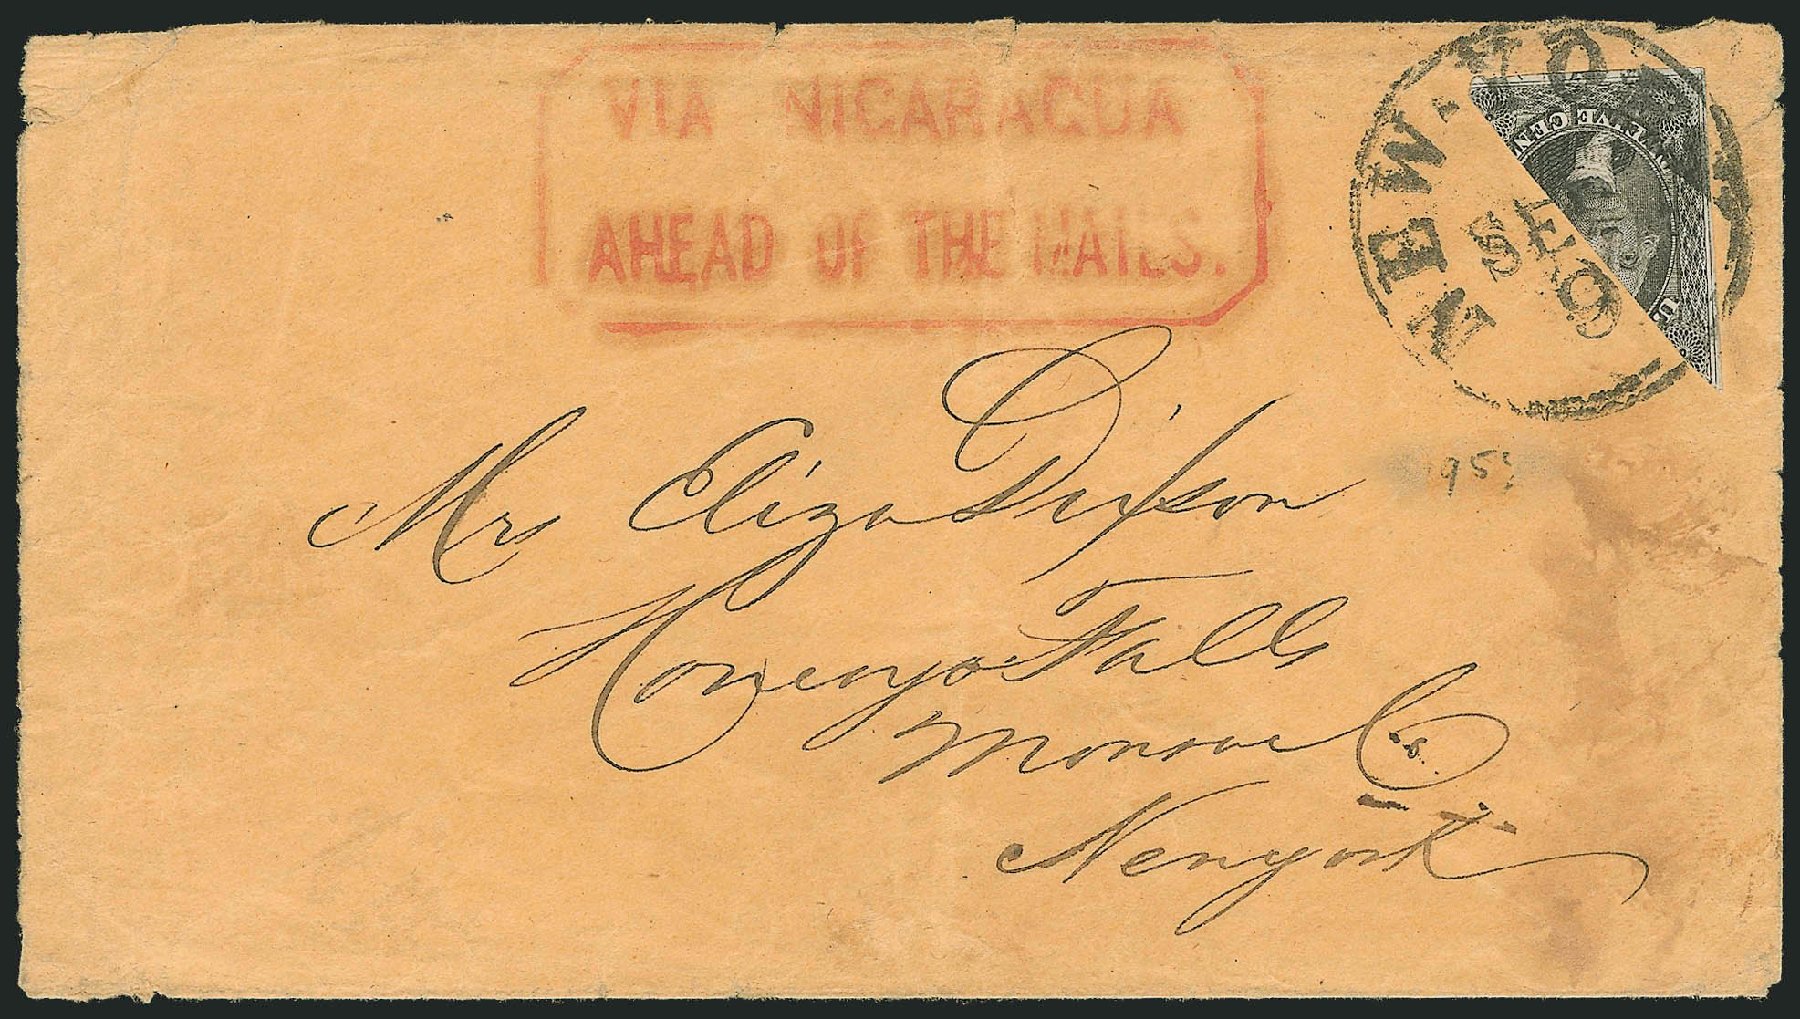 VIA NICARAGUA
AHEAD OF THE MAILS.
NEW-YORK
SEP
9
TWELVE CEN
U.
Mrs Eliza Dixson
Honeoye Falls
Monroe Co.
New york